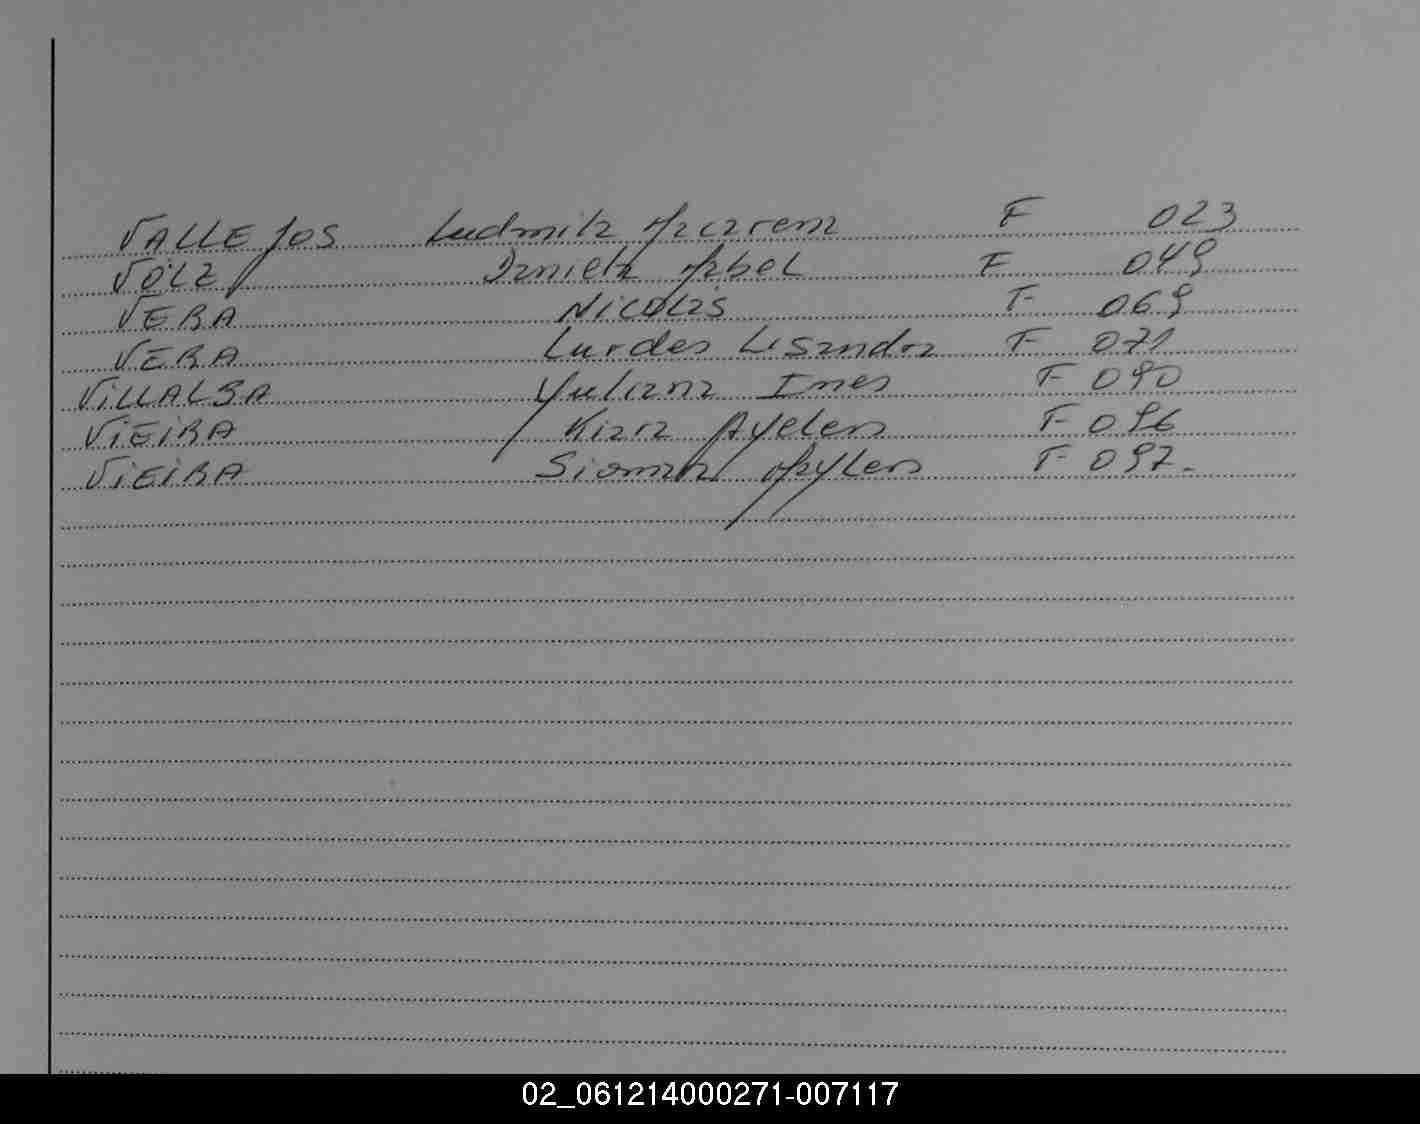 VALLEJOS Ludmila Macarena F 023
VOLZ Daniela Mabel F 049
VERA Nicolás F 069
VERA Lurdes Lisandra F 071
VILLALBA Yuliana Ines F 090
VIEIRA Kiara Ayelen F 096
VIEIRA Siomara Maylen F 097.
02_061214000271-007117